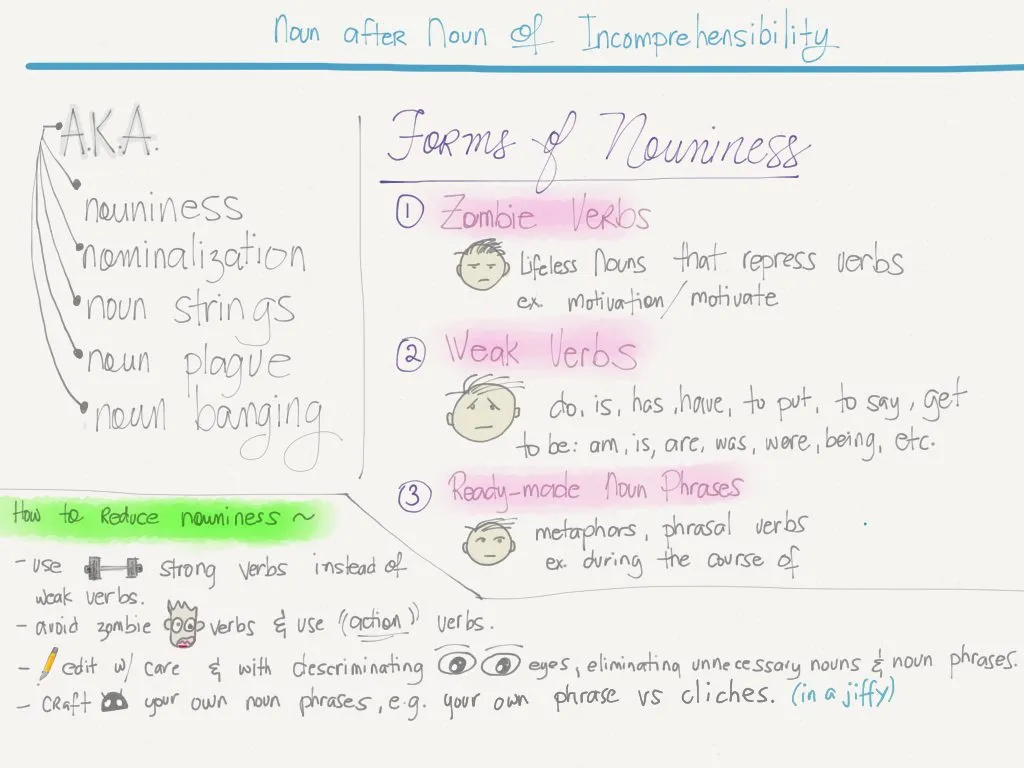 Noun after Noun of Incomprehensibility
A.K.A.
nouniness
nominalization
noun strings
noun plague
noun banging
Forms of Nouniness
1 Zombie Verbs
Lifeless Nouns that repress verbs
ex. motivation/motivate
2 Weak Verbs
do, is, has, have, to put, to say, get
to be: am, is, are, was, were, being, etc.
3 Ready-made Noun Phrases
metaphors, phrasal verbs
ex. during the course of
How to Reduce nouniness ~
- use strong verbs instead of
weak verbs.
- avoid zombie verbs & use (action) verbs.
- edit w/ care & with descriminating eyes, eliminating unnecessary nouns & noun phrases.
- craft your own noun phrases, e.g. your own phrase vs cliches. (in a jiffy)